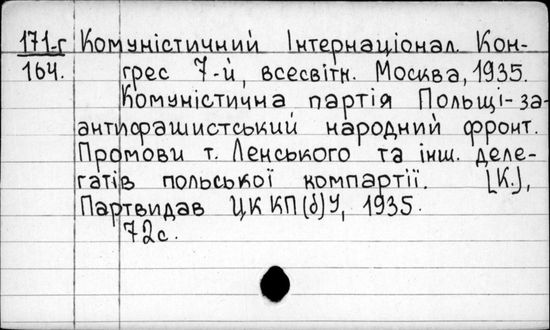 171-г Комуністичний Інтернаціонал. Кон-
164. грес 7-й, всесвітн. Москва, 1935.
Комуністична партія Польщі - за
антифашистський народний фронт.
Промови т. Ленського та інш. деле-
гатів польської компартії. [К.],
Партвидав ЦК КП(б)У, 1935.
72с.